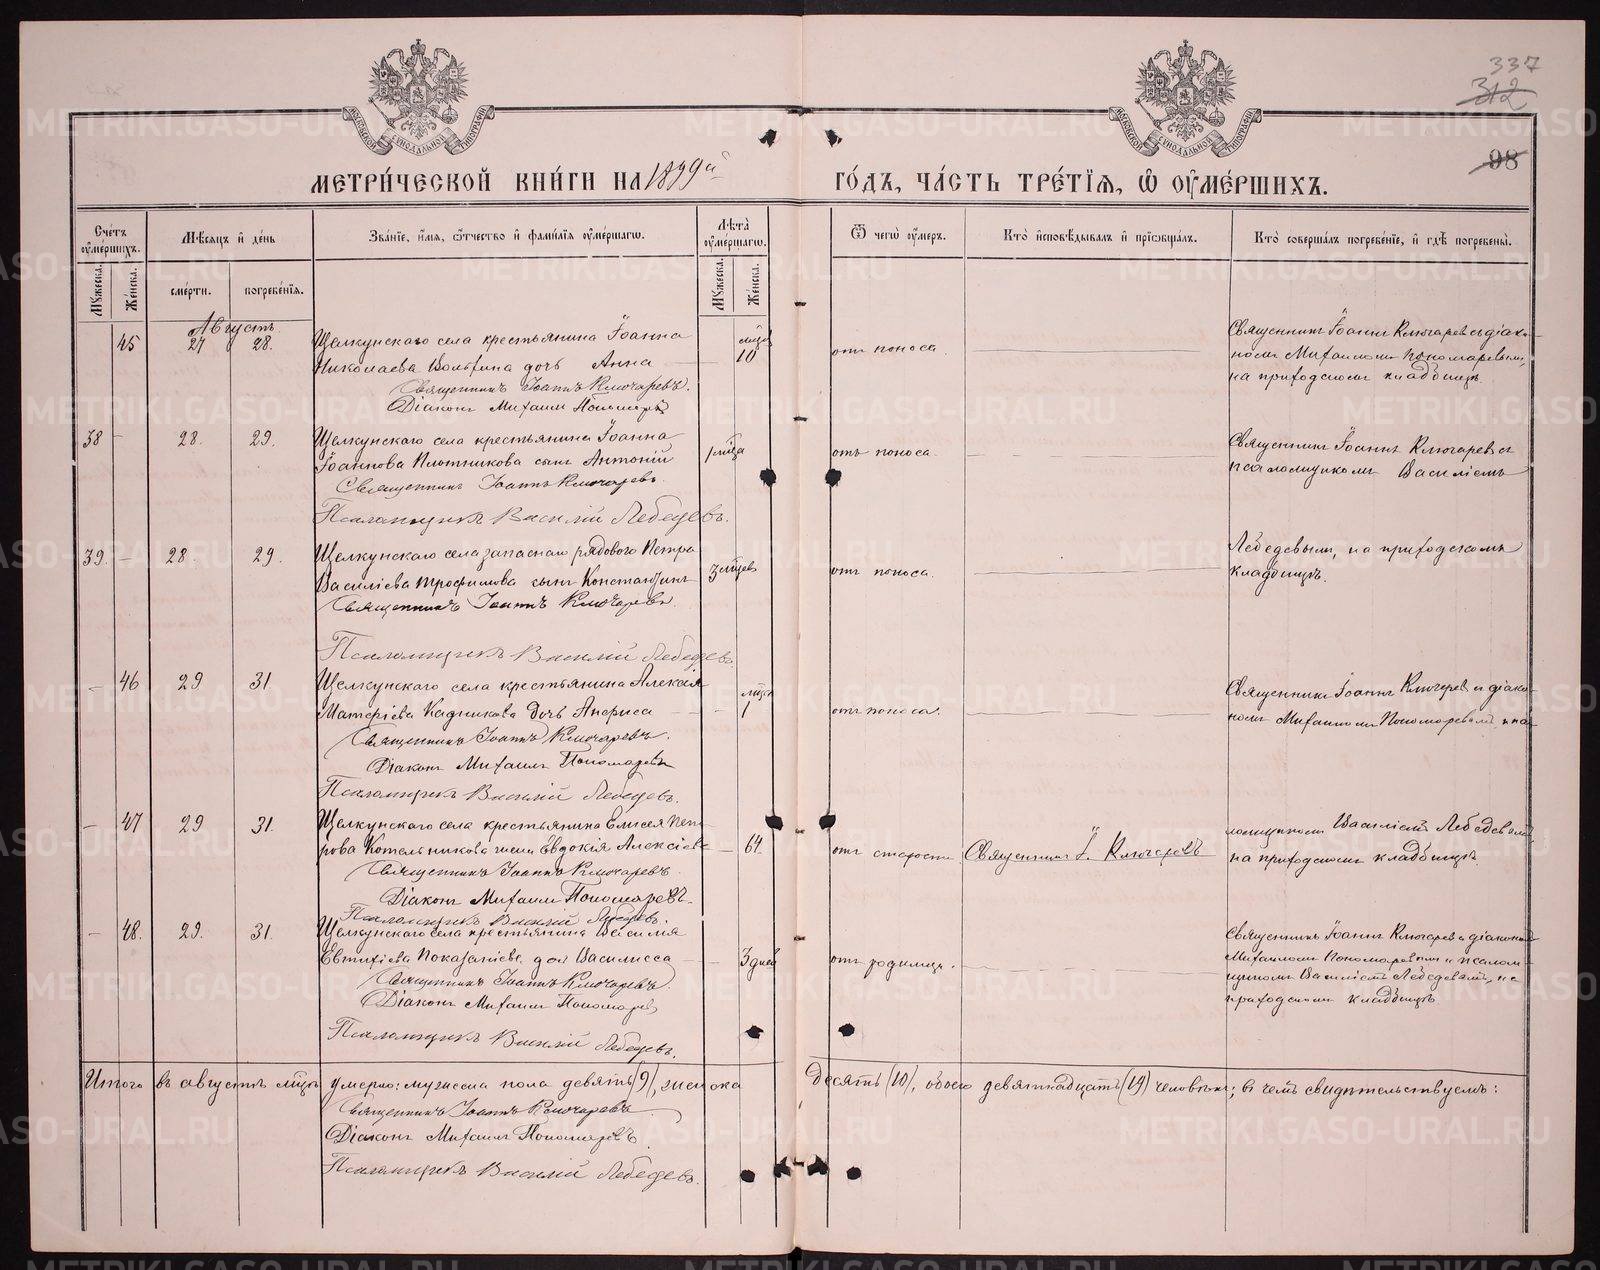 337
312
98
МЕТРИЧЕСКОЙ КНИГИ НА 1899й ГОДЪ, ЧАСТЬ ТРЕТІЯ, Ѿ ОУМЕРШИХЪ.
МОСКОВСКОЙ СѴНОДАЛЬНОЙ ТИПОГРАФІИ
МОСКОВСКОЙ СѴНОДАЛЬНОЙ ТИПОГРАФІИ
Счетъ оумершихъ.
Мѣсяцъ и день
Званіе, имя, отчество и фамилія оумершагѡ.
Лѣта оумершагѡ.
Ѿ чегѡ оумеръ.
Кто исповѣдывалъ и пріобщалъ.
Кто совершалъ погребеніе, и гдѣ погребены.
Мужеска.
Женска.
смерти.
погребенія.
Мужеска.
Женска.
Августъ
45 27 28. Щелкунскаго села крестьянина Іоанна
Николаева дочь Анна 10 отъ поноса.
Священникъ Іоаннъ Ключаревъ.
Діаконъ Михаилъ Пономаревъ
Священникъ Іоаннъ Ключаревъ съ діако-
номъ Михаиломъ Пономаревымъ,
на приходскомъ кладбищѣ.
38 - 28. 29. Щелкунскаго села крестьянина Іоанна
Іоаннова Плотникова сынъ Антоній 1 мѣсца отъ поноса.
Священникъ Іоаннъ Ключаревъ.
Псаломщикъ Василій Лебедевъ.
Священникъ Іоаннъ Ключаревъ съ
псаломщикомъ Василіемъ
39. - 28. 29. Щелкунскаго села запаснаго рядового Петра
Василіева Трофимова сынъ Константинъ 3 мѣсцев отъ поноса.
Священникъ Іоаннъ Ключаревъ.
Псаломщикъ Василій Лебедевъ.
Лебедевымъ, на приходскомъ
кладбищѣ.
- 46 29 31. Щелкунскаго села крестьянина Алексія
Кадникова дочь Анфиса - 1 отъ поноса.
Священникъ Іоаннъ Ключаревъ.
Діаконъ Михаилъ Пономаревъ
Псаломщикъ Василій Лебедевъ.
Священникъ Іоаннъ Ключарев и діако-
номъ Михаиломъ Пономаревымъ
- 47 29 31. Щелкунскаго села крестьянина Елисея Пет-
рова Котельникова жена Евдокія Алексіева - 64 отъ старости Священникъ І. Ключаревъ
Священникъ Іоаннъ Ключаревъ.
Діаконъ Михаилъ Пономаревъ.
Псаломщикъ Василій Лебедевъ.
ломщикомъ Василіемъ Лебедевымъ,
на приходскомъ кладбищѣ.
- 48. 29. 31. Щелкунскаго села крестьянина Василія
Евтихіева дочь Василисса - - 3 дней отъ родимца.
Священникъ Іоаннъ Ключаревъ.
Діаконъ Михаилъ Пономарев
Псаломщикъ Василій Лебедевъ.
Священникъ Іоаннъ Ключарев съ діакономъ
Михаиломъ Пономаревымъ и псалом-
щикомъ Василіемъ Лебедевымъ, на
приходскомъ кладбищѣ.
Итого въ августѣ мѣсцѣ умерло: мужеска пола девять (9), женска десять (10), обоего девятнадцать (19) человѣкъ; в чемъ свидѣтельствуемъ:
Священникъ Іоаннъ Ключаревъ
Діаконъ Михаилъ Пономаревъ.
Псаломщикъ Василій Лебедевъ.
METRIKI.GASO-URAL.RU